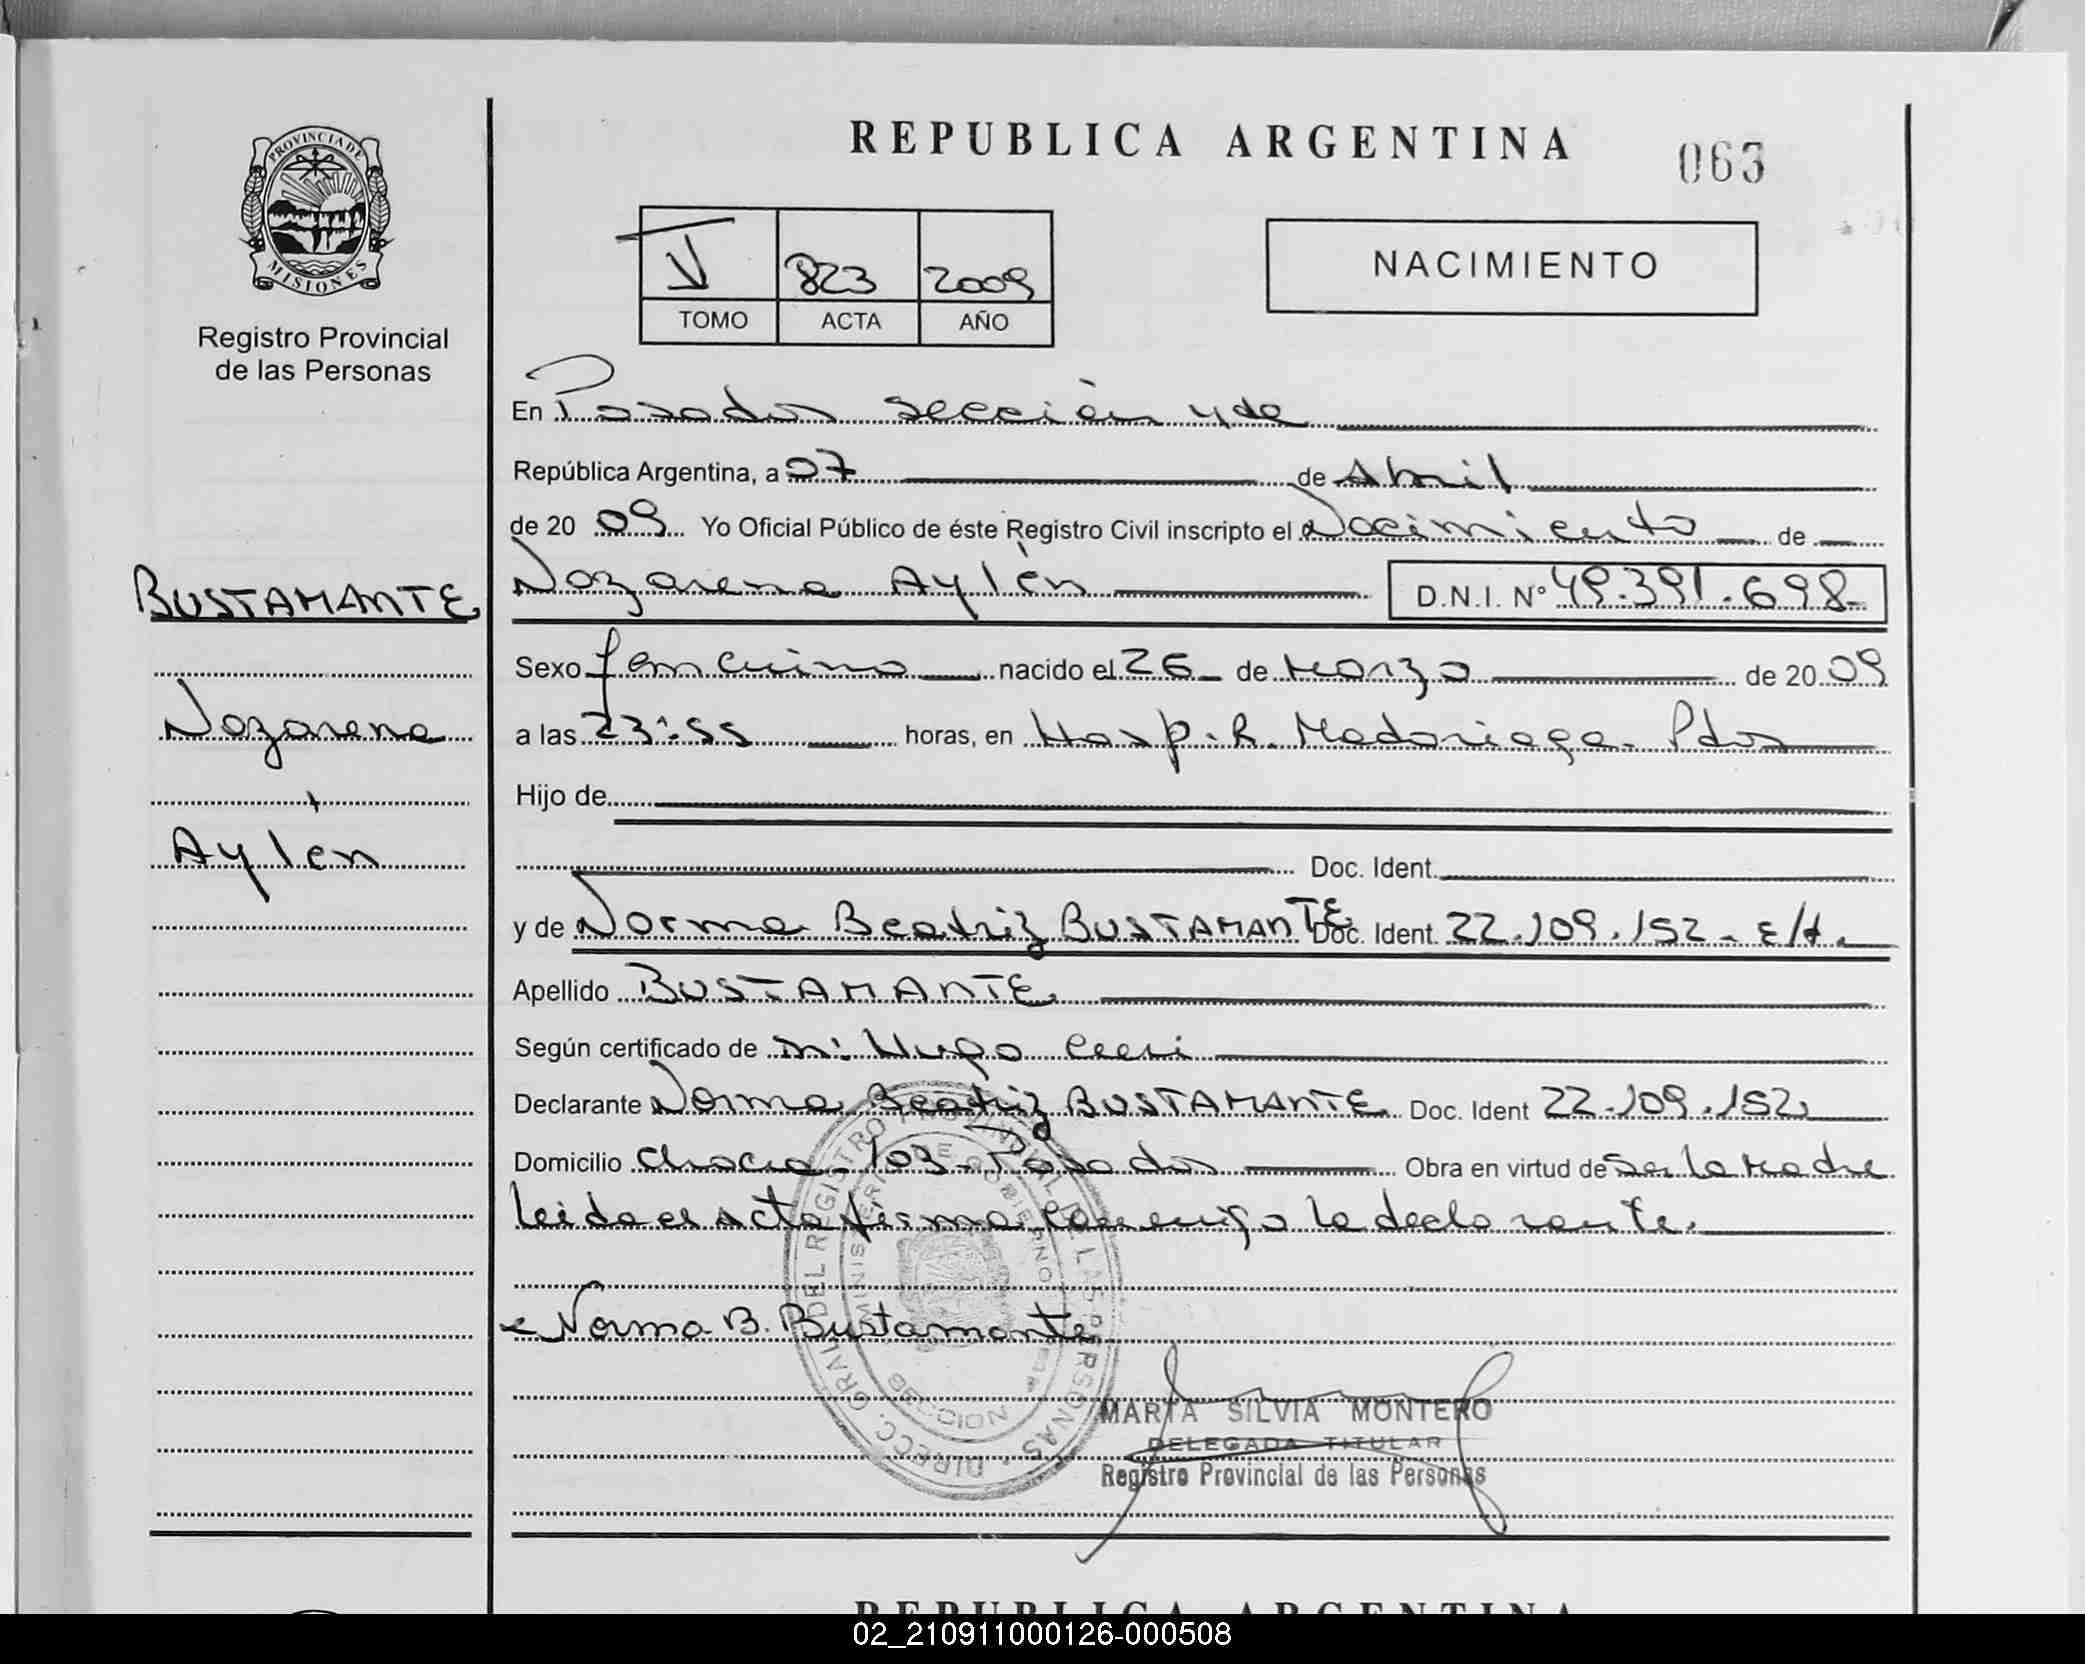 PROVINCIA DE
MISIONES
Registro Provincial
de las Personas
BUSTAMANTE
Nazarena
Aylén
REPUBLICA ARGENTINA
063
V 823 2009
TOMO ACTA AÑO
NACIMIENTO
En Posadas sección 4ta
República Argentina, a 07 de Abril
de 20 09 Yo Oficial Público de éste Registro Civil inscripto el Nacimiento de
Nazarena Aylén D.N.I. N° 49.391.698-
Sexo femenino nacido el 26 de Marzo de 20 09
a las 23:55 horas, en Hosp. R. Madariaga - Pdas
Hijo de
Doc. Ident.
y de Norma Beatriz BUSTAMANTE Doc. Ident. 22.109.152 -
Apellido BUSTAMANTE
Según certificado de Hugo
Declarante Norma Beatriz BUSTAMANTE Doc. Ident 22.109.152
Domicilio Chacra - 103 - Posadas Obra en virtud de Ser la Madre
leida el acta firma conmigo la declarante.
Norma B. Bustamante
DIRECC. GRAL. DEL REGISTRO PROVINCIAL DE LAS PERSONAS
MINISTERIO DE GOBIERNO
MARTA SILVIA MONTERO
DELEGADA TITULAR
Registro Provincial de las Personas
REPUBLICA ARGENTINA
02_210911000126-000508